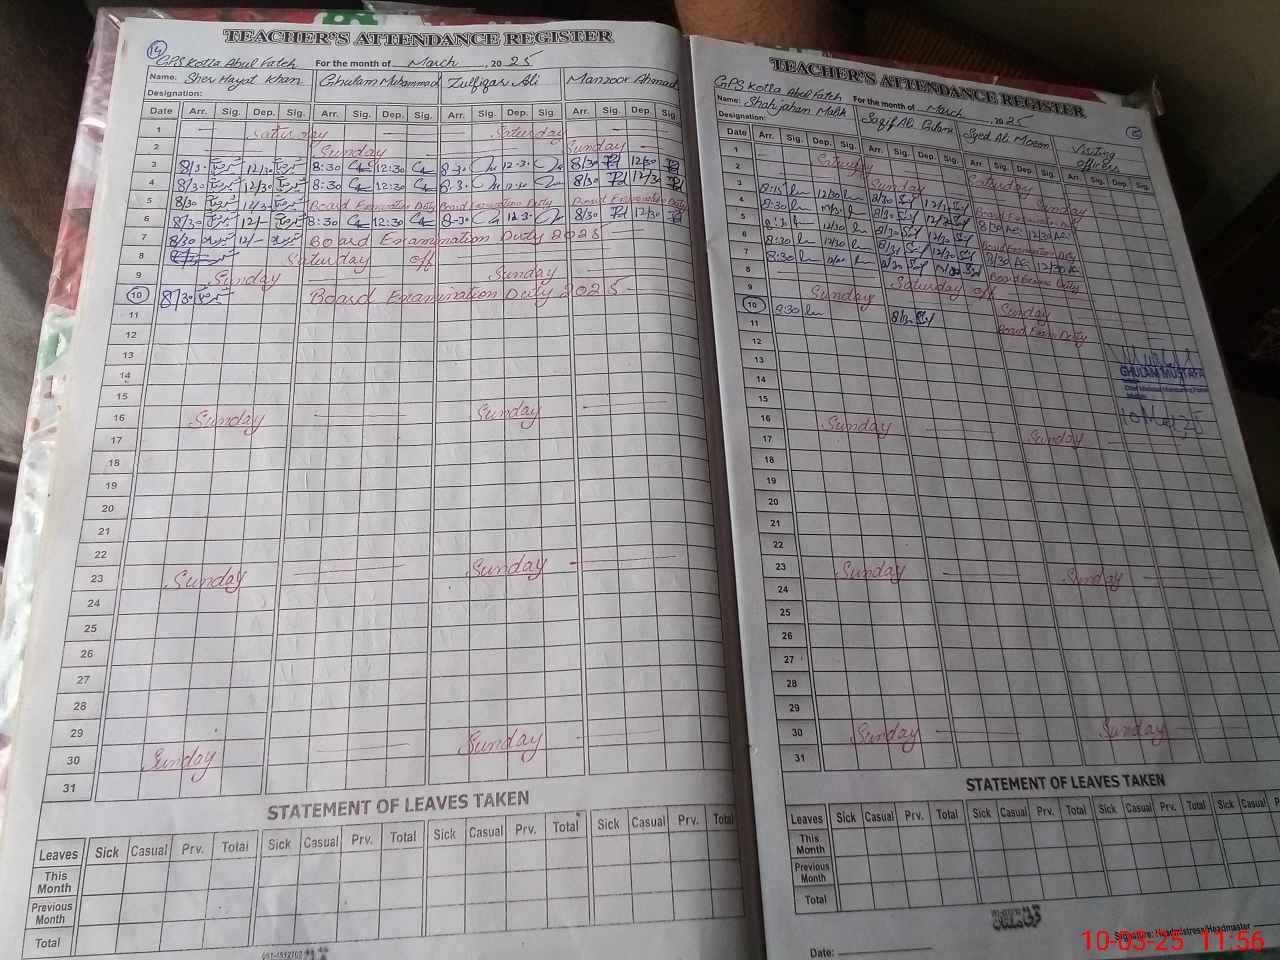 14
TEACHER'S ATTENDANCE REGISTER
GPS Kotla Abul Fateh For the month of March, 2025
Name: Sher Hayat Khan Ghulam Muhammad Zulfiqar Ali Manzoor Ahmad
Designation:
Date Arr. Sig. Dep. Sig. Arr. Sig. Dep. Sig. Arr. Sig. Dep. Sig Arr. Sig. Dep Sig.
1 Saturday Saturday
2 Sunday Sunday
3 8/30 12/30 8:30 12:30 8-30 12-30 8/30 12/30
4 8/30 12/30 8:30 12:30 8-30 12-30 8/30 12/30
5 8/30 12/30 Board Examination Duty Board Examination Duty Board Examination Duty
6 8/30 12/- 8:30 12:30 8-30 12-30 8/30 12/30
7 8/30 12/- Board Examination Duty 2025
8 Saturday off
9 Sunday Sunday
10 8/30 Board Examination Duty 2025
11
12
13
14
15
16 Sunday Sunday
17
18
19
20
21
22
23 Sunday Sunday
24
25
26
27
28
29
30 Sunday Sunday
31
STATEMENT OF LEAVES TAKEN
Leaves Sick Casual Prv. Total Sick Casual Prv. Total Sick Casual Prv. Total Sick Casual Prv. Total
This Month
Previous Month
Total
15
TEACHER'S ATTENDANCE REGISTER
GPS Kotla Abul Fateh For the month of March, 2025
Name: Shah Jahan Malik Syed Ali Visiting officer
Designation:
Date Arr. Sig. Dep. Sig. Arr. Sig. Dep. Sig. Arr. Sig. Dep. Sig. Arr. Sig. Dep. Sig.
1 Saturday Saturday
2 Sunday Sunday
3 8:15 12/30 8/30 12/30 Board Examination
4 8:30 12/30 8/30 12/30 8/30 12/30
5 12/30 8/30 12/30 Board Examination Duty
6 8:30 12/30 8/30 12/30 8/30 12/30
7 8:30 8/30 Board Exam Duty
8 Saturday off
9 Sunday Sunday
10 8:30 8/30 Board Exam Duty
11
12
13 GHULAM MUSTAFA
14
15 10 Mar, 25
16 Sunday Sunday
17
18
19
20
21
22
23 Sunday Sunday
24
25
26
27
28
29
30 Sunday Sunday
31
STATEMENT OF LEAVES TAKEN
Leaves Sick Casual Prv. Total Sick Casual Prv. Total Sick Casual Prv. Total Sick Casual
This Month
Previous Month
Total
Signature: Headmistress/Headmaster
Date:
10-03-25 11:56